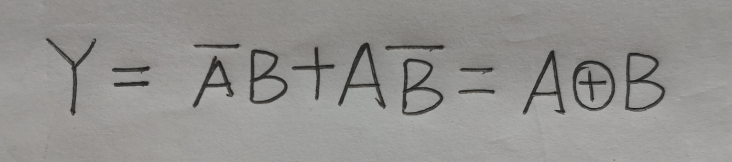 Y = A̅B + AB̅ = A⊕B